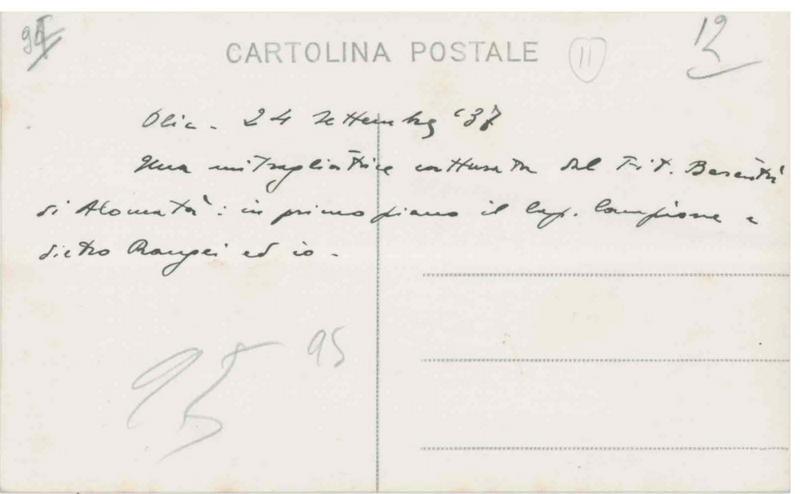 95
CARTOLINA POSTALE
11
12
Olia - 24 settembre '37
Una mitragliatrice catturata dal Fit.
di Alomatà: in primo piano il Cap. Campione e
dietro Rangei ed io -
95
95